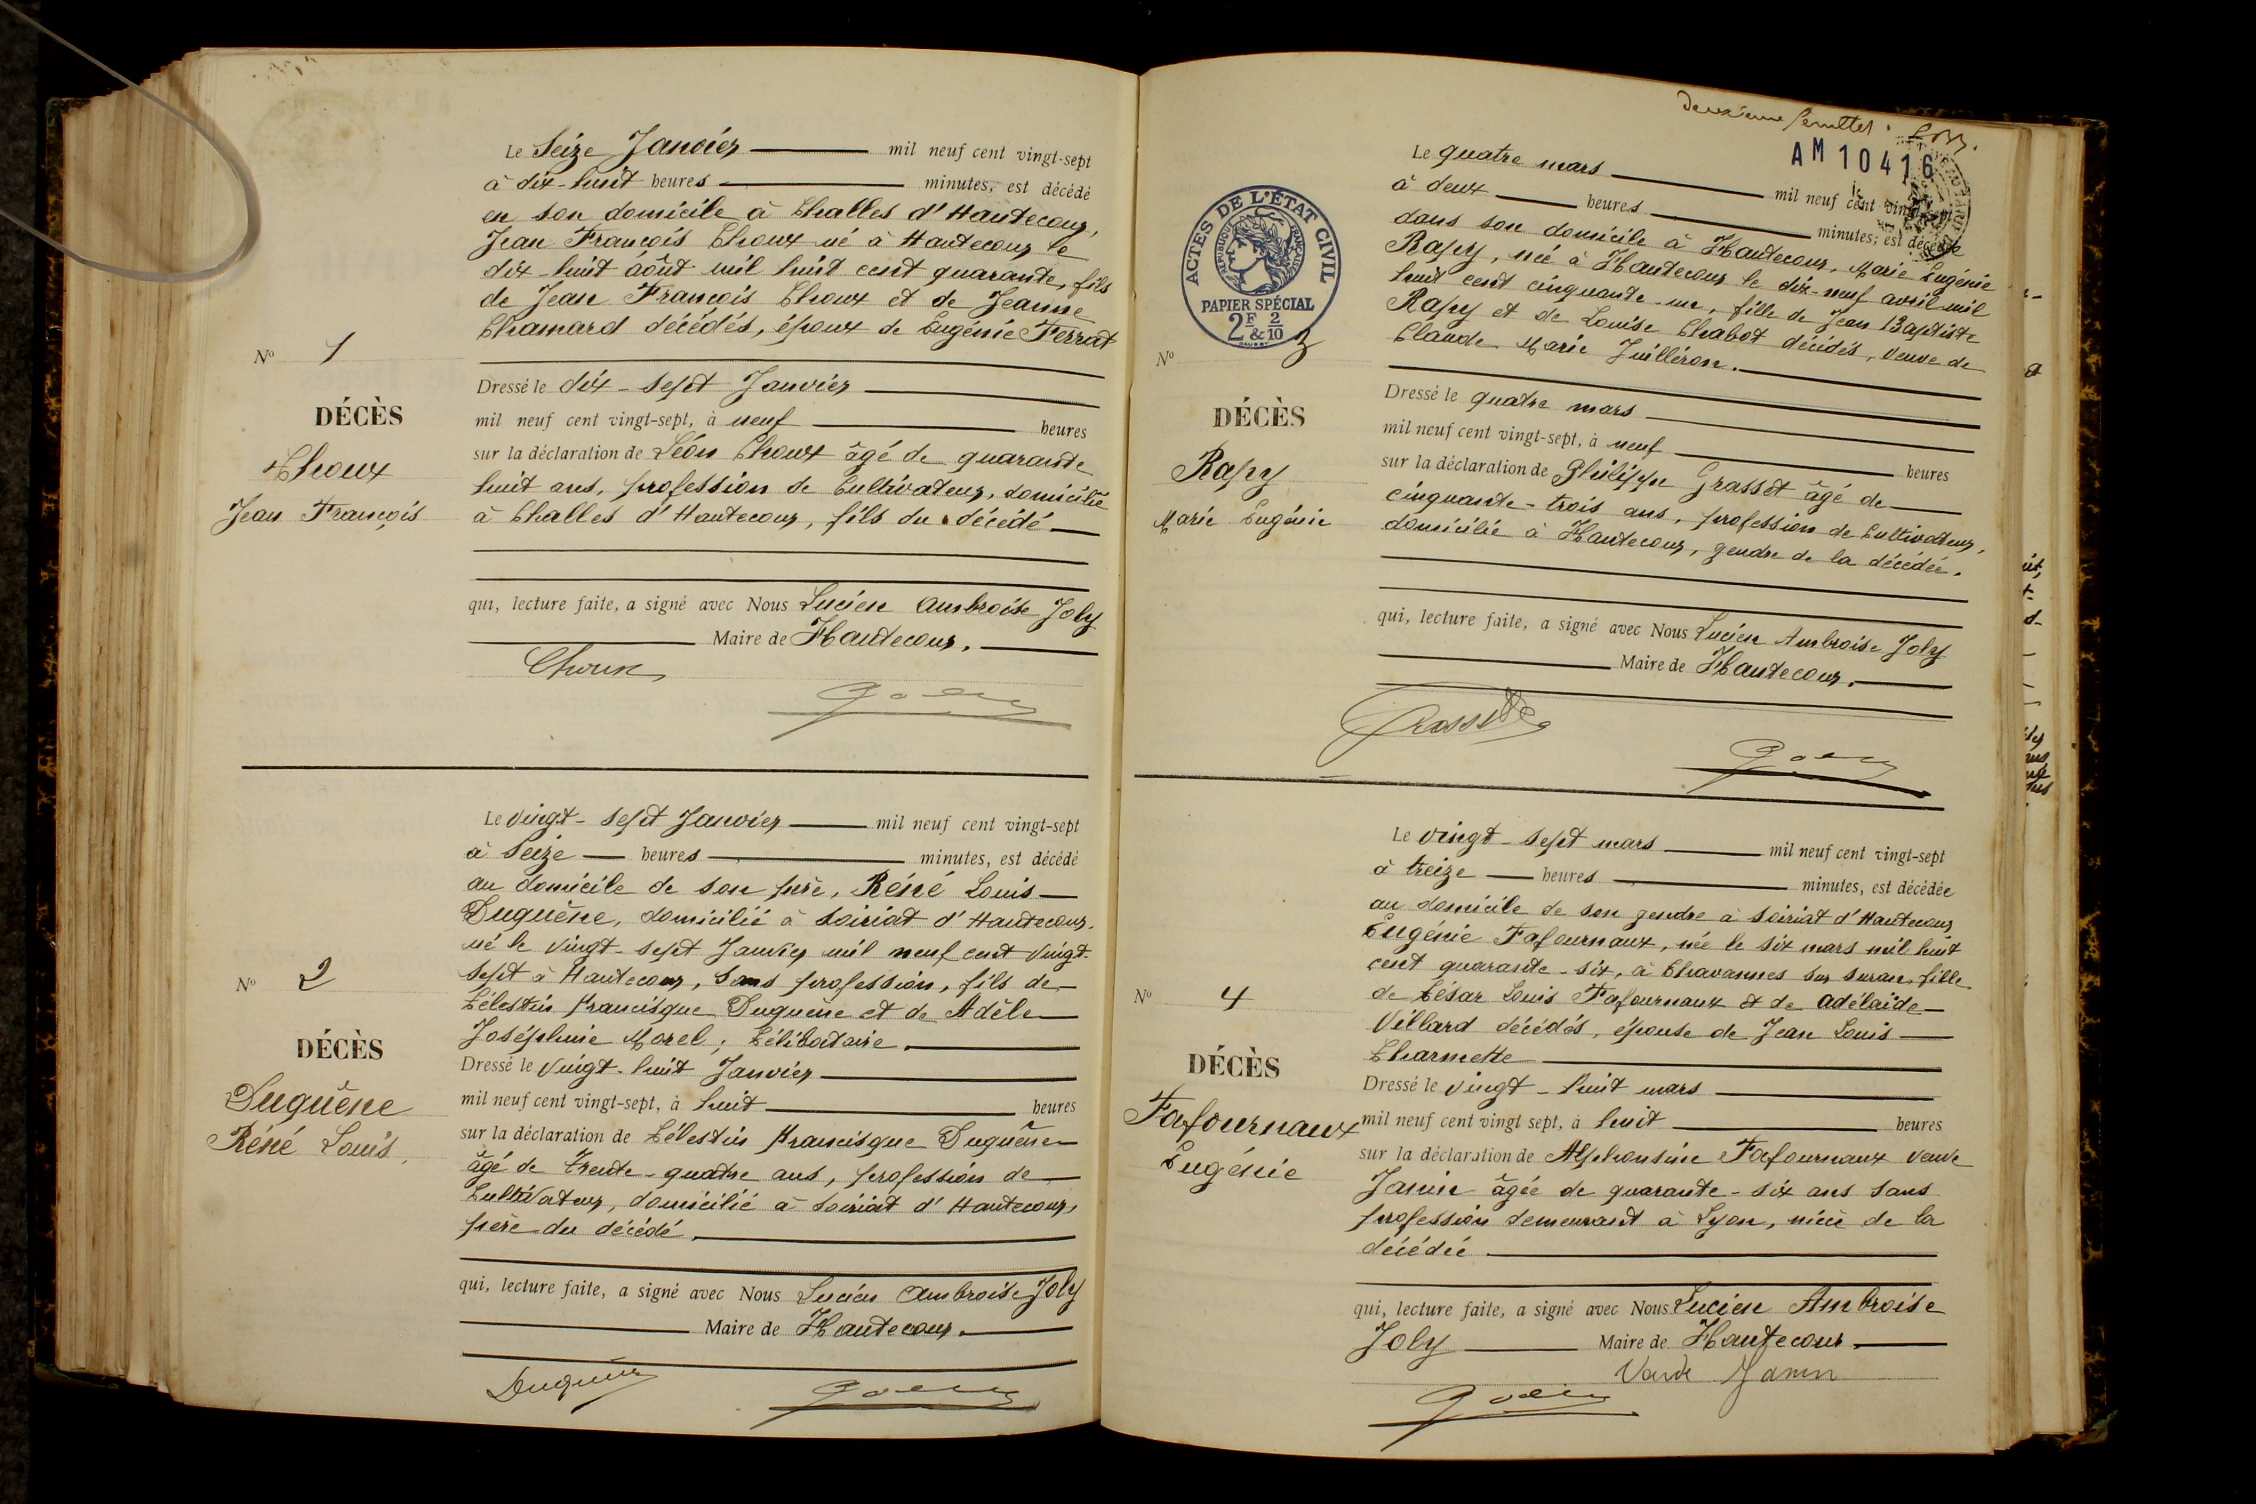 Le Seize Janvier mil neuf cent vingt-sept
à dix-huit heures minutes, est décédé
en son domicile à Challes d'Hautecour,
Jean François Choux né à Hautecour le
dix-huit août mil huit cent quarante, fils
de Jean François Choux et de Jeanne
Chamard décédés, époux de Eugénie Ferrat
No 1
DÉCÈS
Choux
Jean François
Dressé le dix-sept Janvier
mil neuf cent vingt-sept, à neuf heures
sur la déclaration de Léon Choux âgé de quarante
huit ans, profession de Cultivateur, domicilié
à Challes d'Hautecour, fils du décédé
qui, lecture faite, a signé avec Nous Lucien Ambroise Joly
Maire de Hautecour.
Choux
Joly
Le vingt-sept Janvier mil neuf cent vingt-sept
à Seize heures minutes, est décédé
au domicile de son père, Réné Louis
Duguêne, domicilié à Soiriat d'Hautecour,
né le vingt-sept Janvier mil neuf cent vingt-
sept à Hautecour, sans profession, fils de
Célestin Francisque Duguêne et de Adèle
Joséphine Morel, Célibataire.
No 2
DÉCÈS
Duguêne
Réné Louis.
Dressé le vingt-huit Janvier
mil neuf cent vingt-sept, à huit heures
sur la déclaration de Célestin Francisque Duguêne
âgé de trente-quatre ans, profession de
Cultivateur, domicilié à Soiriat d'Hautecour,
père du décédé.
qui, lecture faite, a signé avec Nous Lucien Ambroise Joly
Maire de Hautecour.
Duguêne
Joly
Deuxième feuillet.
AM 10416
ACTES DE L'ÉTAT CIVIL
RÉPUBLIQUE FRANÇAISE
PAPIER SPÉCIAL
2F & 2/10
Le quatre mars mil neuf cent vingt-sept
à deux heures minutes, est décédée
dans son domicile à Hautecour, Marie Eugénie
Rapy, née à Hautecour le dix-neuf avril mil
huit cent cinquante-un, fille de Jean Baptiste
Rapy et de Louise Chabot décédés, veuve de
Claude Marie Juilléron.
No 3
DÉCÈS
Rapy
Marie Eugénie
Dressé le quatre mars
mil neuf cent vingt-sept, à neuf heures
sur la déclaration de Philippe Grasset âgé de
cinquante-trois ans, profession de Cultivateur,
domicilié à Hautecour, gendre de la décédée.
qui, lecture faite, a signé avec Nous Lucien Ambroise Joly
Maire de Hautecour.
Grasset
Joly
Le vingt-sept mars mil neuf cent vingt-sept
à treize heures minutes, est décédée
au domicile de son gendre à Soiriat d'Hautecour
Eugénie Fafournaux, née le six mars mil huit
cent quarante-six, à Chavannes sur Suran, fille
de César Louis Fafournaux et de Adélaïde
Villard décédés, épouse de Jean Louis
Charmette
No 4
DÉCÈS
Fafournaux
Eugénie
Dressé le vingt-huit mars
mil neuf cent vingt sept, à huit heures
sur la déclaration de Alphonsine Fafournaux veuve
Janin âgée de quarante-six ans sans
profession demeurant à Lyon, nièce de la
décédée
qui, lecture faite, a signé avec Nous Lucien Ambroise
Joly Maire de Hautecour.
Veuve Janin
Joly